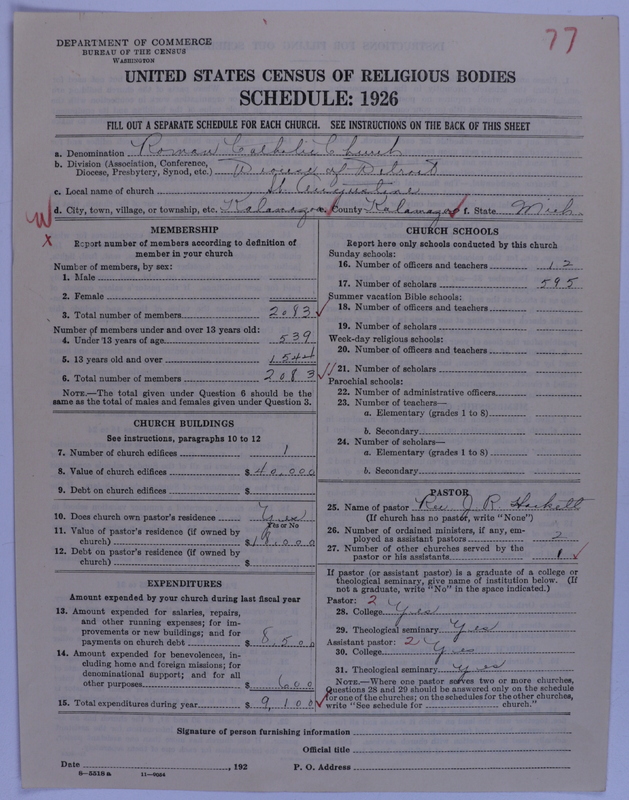 77
DEPARTMENT OF COMMERCE
BUREAU OF THE CENSUS
WASHINGTON
UNITED STATES CENSUS OF RELIGIOUS BODIES
SCHEDULE: 1926
FILL OUT A SEPARATE SCHEDULE FOR EACH CHURCH. SEE INSTRUCTIONS ON THE BACK OF THIS SHEET
a. Denomination Roman Catholic Church
b. Division (Association, Conference,
Diocese, Presbytery, Synod, etc.) Diocese of Detroit
c. Local name of church St. Augustine
d. City, town, village, or township, etc. Kalamazoo e. County Kalamazoo f. State Mich.
MEMBERSHIP
Report number of members according to definition of
member in your church
Number of members, by sex:
1. Male
2. Female
3. Total number of members 2083
Number of members under and over 13 years old:
4. Under 13 years of age 539
5. 13 years old and over 1544
6. Total number of members 2083
NOTE.—The total given under Question 6 should be the
same as the total of males and females given under Question 3.
CHURCH BUILDINGS
See instructions, paragraphs 10 to 12
7. Number of church edifices 1
8. Value of church edifices $ 40,000
9. Debt on church edifices $
10. Does church own pastor's residence Yes
Yes or No
11. Value of pastor's residence (if owned by
church) $ 18,000
12. Debt on pastor's residence (if owned by
church) $
EXPENDITURES
Amount expended by your church during last fiscal year
13. Amount expended for salaries, repairs,
and other running expenses; for im-
provements or new buildings; and for
payments on church debt $ 8,500
14. Amount expended for benevolences, in-
cluding home and foreign missions; for
denominational support; and for all
other purposes $ 600
15. Total expenditures during year $ 9,100
CHURCH SCHOOLS
Report here only schools conducted by this church
Sunday schools:
16. Number of officers and teachers 12
17. Number of scholars 595
Summer vacation Bible schools:
18. Number of officers and teachers
19. Number of scholars
Week-day religious schools:
20. Number of officers and teachers
21. Number of scholars
Parochial schools:
22. Number of administrative officers
23. Number of teachers—
a. Elementary (grades 1 to 8)
b. Secondary
24. Number of scholars—
a. Elementary (grades 1 to 8)
b. Secondary
PASTOR
25. Name of pastor Rev J R Hackett
(If church has no pastor, write "None")
26. Number of ordained ministers, if any, em-
ployed as assistant pastors 2
27. Number of other churches served by the
pastor or his assistants 1
If pastor (or assistant pastor) is a graduate of a college or
theological seminary, give name of institution below. (If
not a graduate, write "No" in the space indicated.)
Pastor: 2
28. College Yes
29. Theological seminary Yes
Assistant pastor: 2
30. College Yes
31. Theological seminary Yes
NOTE.—Where one pastor serves two or more churches,
Questions 28 and 29 should be answered only on the schedule
for one of the churches; on the schedules for the other churches,
write "See schedule for church."
Signature of person furnishing information
Official title
Date , 192 P. O. Address
8—5518 a 11—9064